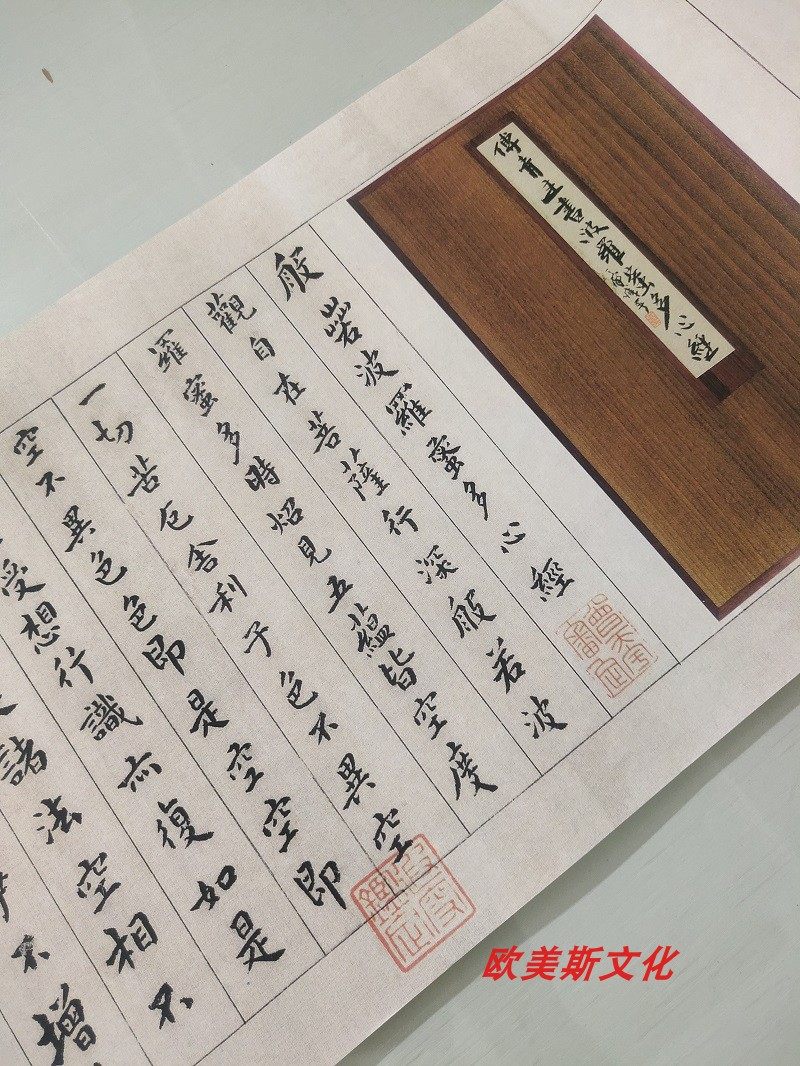 傅青主書波羅蜜多心經
般若波羅蜜多心經
觀自在菩薩行深般若波
羅蜜多時炤見五蘊皆空度
一切苦厄舍利子色不異空
空不異色色即是空空即
受想行識亦復如是
諸法空相不
不增
欧美斯文化